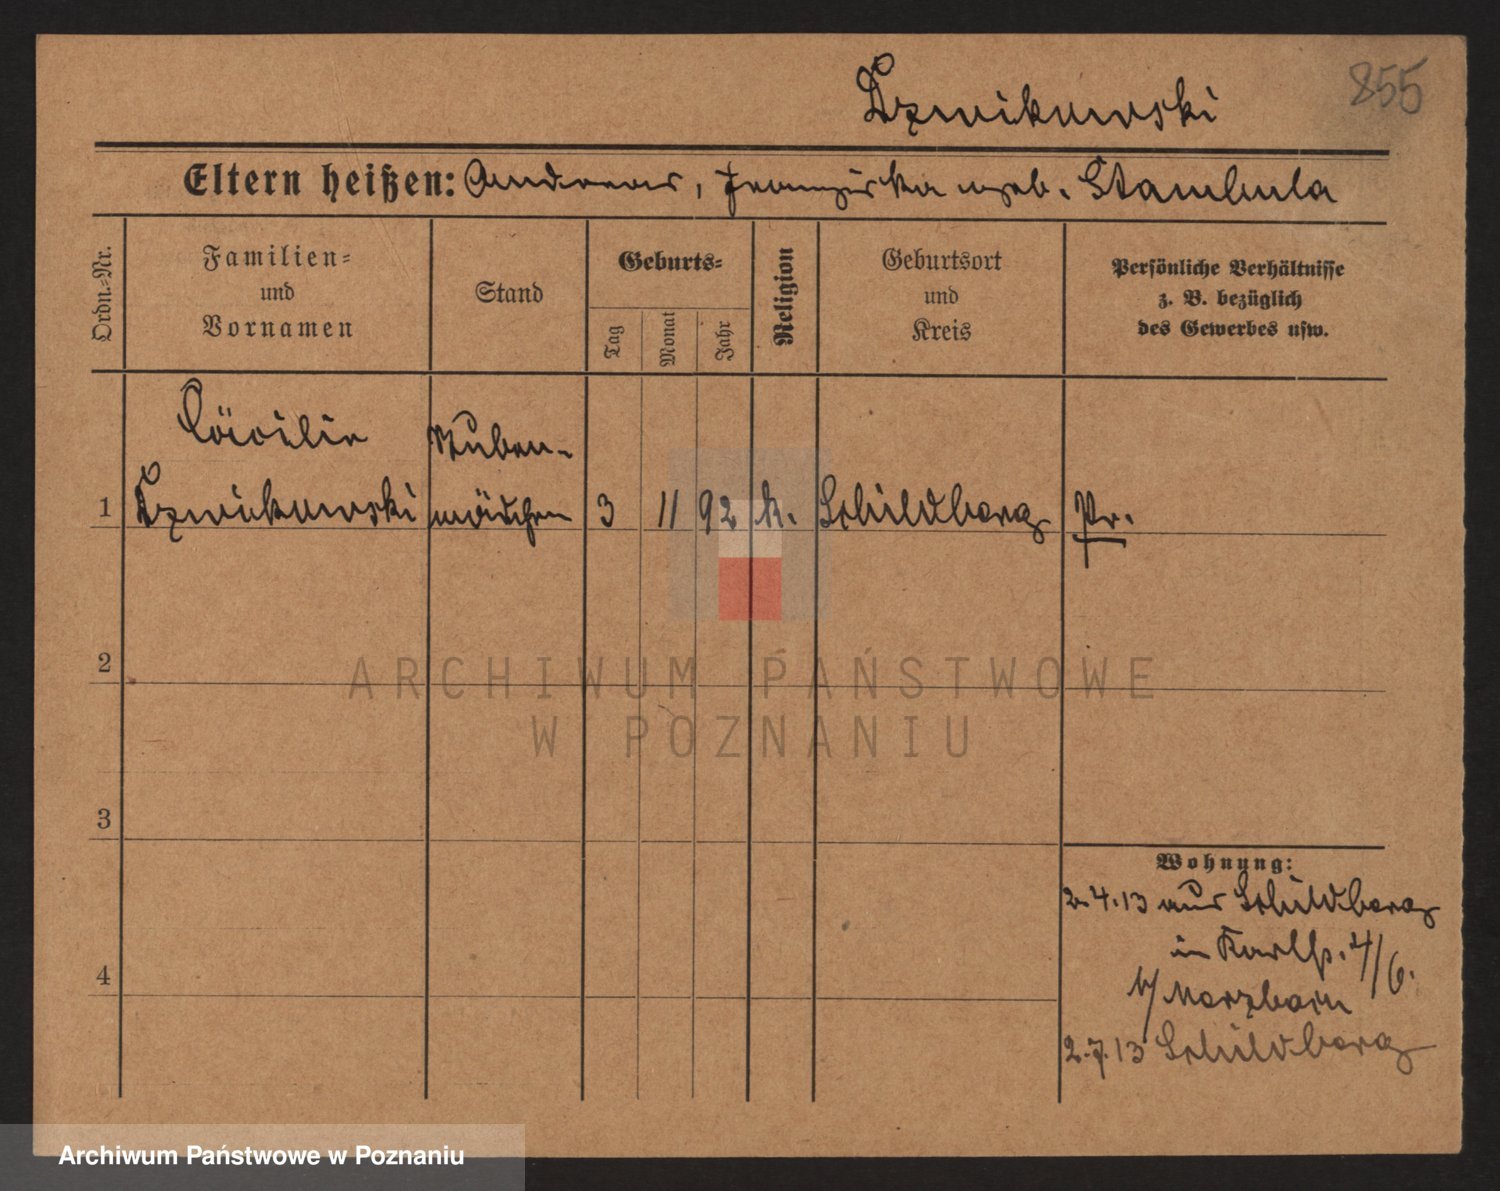 855
Dzwikowski
Eltern heißen: Andreas, Franziska geb. Stambula
Ordn.=Nr.
Familien=
und
Vornamen
Stand
Geburts=
Tag
Monat
Jahr
Religion
Geburtsort
und
Kreis
Persönliche Verhältnisse
z. B. bezüglich
des Gewerbes usw.
Cäcilie Stuben-
1 Dzwikowski mädchen 3 11 92 k. Schildberg Pr.
2
3
4
Wohnung:
2.4.13 aus Schildberg
in Karlstr. 4/6.
b/
2.7.13 Schildberg
ARCHIWUM PAŃSTWOWE
W POZNANIU
Archiwum Państwowe w Poznaniu